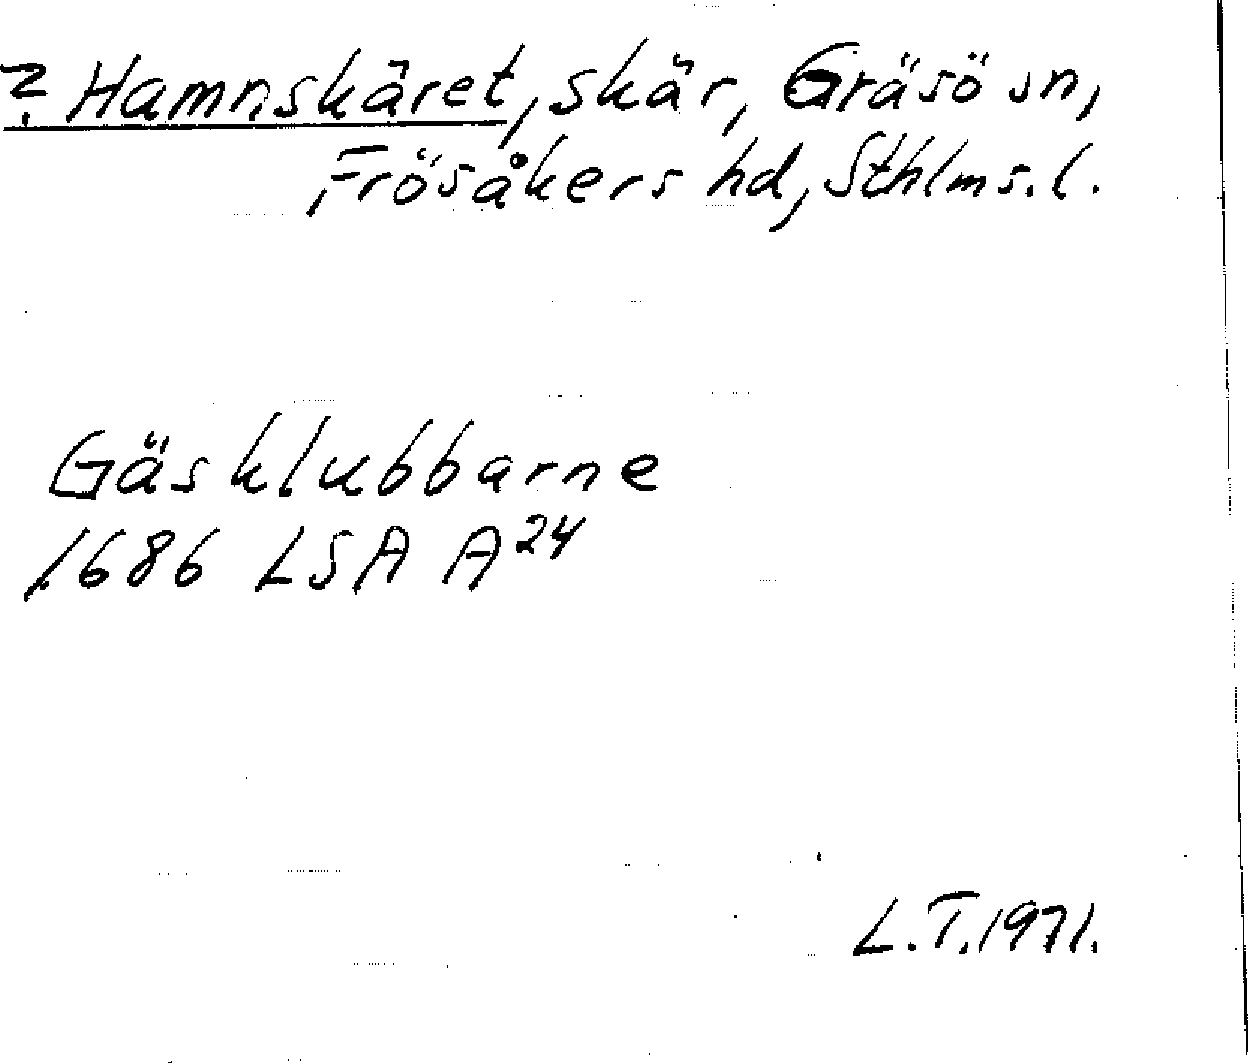 ? Hamnskäret, skär, Gräsö sn,
Frösåkers hd, Sthlms. l.
Gäsklubbarne
1686 LSA A²⁴
L.T. 1971.